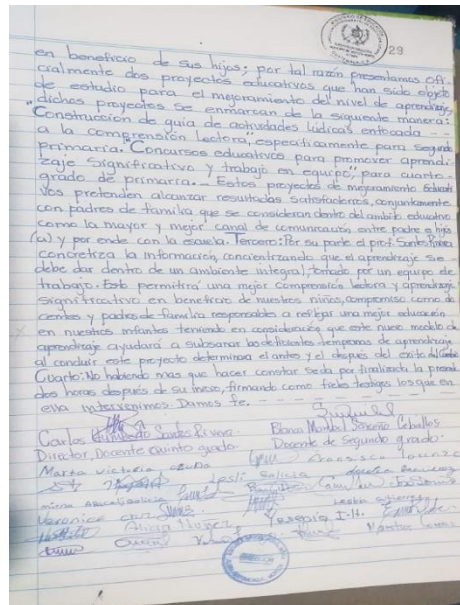 29
en beneficio de sus hijos; por tal razón presentamos ofi
cialmente dos proyectos educativos que han sido objeto
de estudio para el mejoramiento del nivel de aprendizaje,
dichos proyectos se enmarcan de la siguiente manera:
"Construcción de guía de actividades lúdicas enfocada --
a la comprensión lectora, específicamente para segundo
primaria. "Concursos educativos para promover aprendi-
zaje significativo y trabajo en equipo", para cuarto -
grado de primaria. - Estos proyectos de mejoramiento Educati
vos pretenden alcanzar resultados satisfactorios, conjuntamente
con padres de familia que se consideran dentro del ambito educativo
como la mayor y mejor canal de comunicación entre padre e hijos
(a) y por ende con la escuela. Tercero: Por su parte el prof. Santos Rivera
concretiza la información, concientizando que el aprendizaje se
debe dar dentro de un ambiente integral, tomado por un equipo de
trabajo. Esto permitirá una mejor comprensión lectora y aprendizaje
significativo en beneficio de nuestros niños, compromiso como do
centes y padres de familia responsables a reflejar una mejor educación
en nuestros infantes teniendo en consideración que este nuevo modelo de
aprendizaje ayudará a subsanar las deficientes tempranas de aprendizaje
al conducir este proyecto determinosa el antes y el después del exito del Cambio
Cuarto: No habiendo mas que hacer constar se da por finalizada la presente
dos horas después de su inicio, firmando como fieles testigos los que en
ella intervenimos. Damos fe.
Carlos Humberto Santos Rivera
Blanca Maribel Sarceño Ceballos
Director, Docente quinto grado.
Docente de Segundo grado.
Marta Victoria
Veronica
Alicia
Yessenia